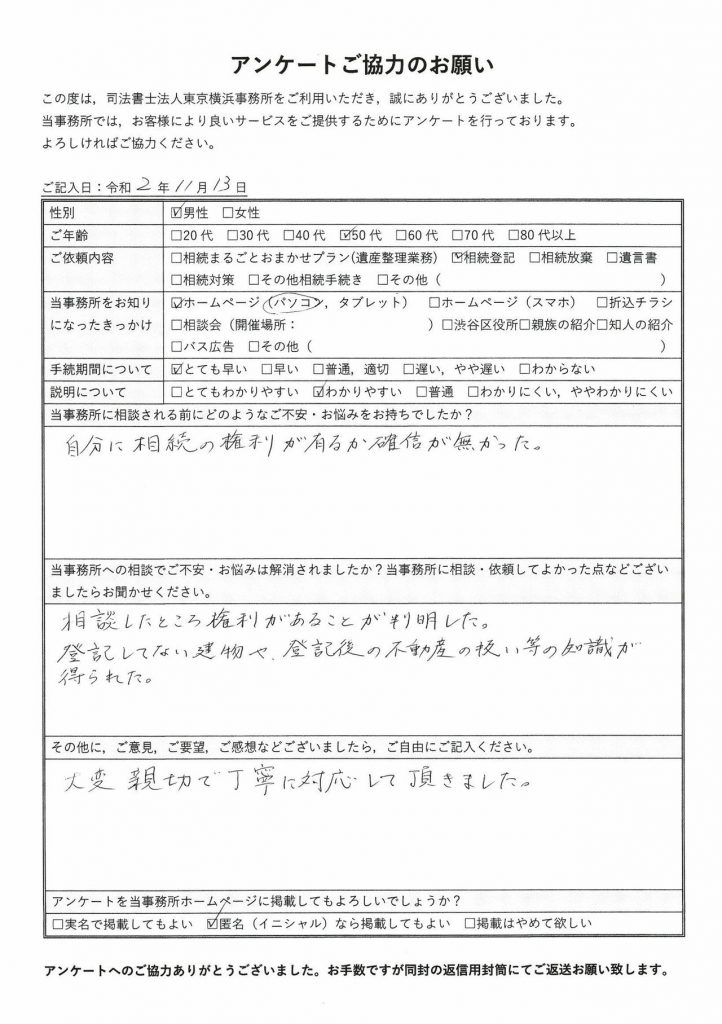 アンケートご協力のお願い
この度は，司法書士法人東京横浜事務所をご利用いただき，誠にありがとうございました。
当事務所では，お客様により良いサービスをご提供するためにアンケートを行っております。
よろしければご協力ください。
ご記入日：令和 2 年 11 月 13 日
性別 ☑男性 □女性
ご年齢 □20 代 □30 代 □40 代 ☑50 代 □60 代 □70 代 □80 代以上
ご依頼内容 □相続まるごとおまかせプラン(遺産整理業務) ☑相続登記 □相続放棄 □遺言書
□相続対策 □その他相続手続き □その他（ ）
当事務所をお知り ☑ホームページ（パソコン，タブレット） □ホームページ（スマホ） □折込チラシ
になったきっかけ □相談会（開催場所： ）□渋谷区役所□親族の紹介□知人の紹介
□バス広告 □その他（ ）
手続期間について ☑とても早い □早い □普通，適切 □遅い，やや遅い □わからない
説明について □とてもわかりやすい ☑わかりやすい □普通 □わかりにくい，ややわかりにくい
当事務所に相談される前にどのようなご不安・お悩みをお持ちでしたか？
自分に相続の権利が有るか確信が無かった。
当事務所への相談でご不安・お悩みは解消されましたか？当事務所に相談・依頼してよかった点などござい
ましたらお聞かせください。
相談したところ権利があることが判明した。
登記してない建物や、登記後の不動産の扱い等の知識が
得られた。
その他に，ご意見，ご要望，ご感想などございましたら，ご自由にご記入ください。
大変親切で丁寧に対応して頂きました。
アンケートを当事務所ホームページに掲載してもよろしいでしょうか？
□実名で掲載してもよい ☑匿名（イニシャル）なら掲載してもよい □掲載はやめて欲しい
アンケートへのご協力ありがとうございました。お手数ですが同封の返信用封筒にてご返送お願い致します。